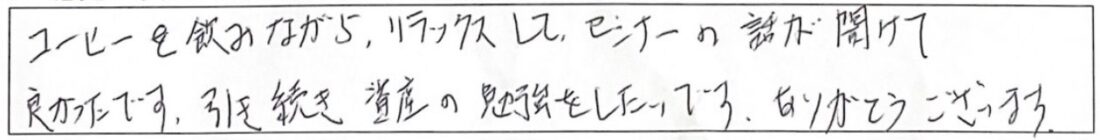 コーヒーを飲みながら、リラックスして、セミナーの話が聞けて
良かったです。引き続き資産の勉強をしたいです。ありがとうございます。